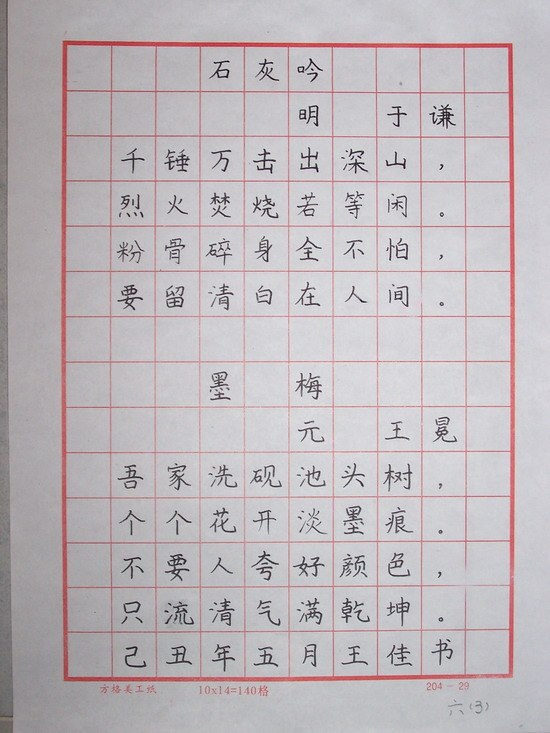 石灰吟
明 于谦
千锤万击出深山，
烈火焚烧若等闲。
粉骨碎身全不怕，
要留清白在人间。
墨 梅
元 王冕
吾家洗砚池头树，
个个花开淡墨痕。
不要人夸好颜色，
只流清气满乾坤。
己丑年五月王佳书
方格美工纸 10x14=140格 204－29
六(3)